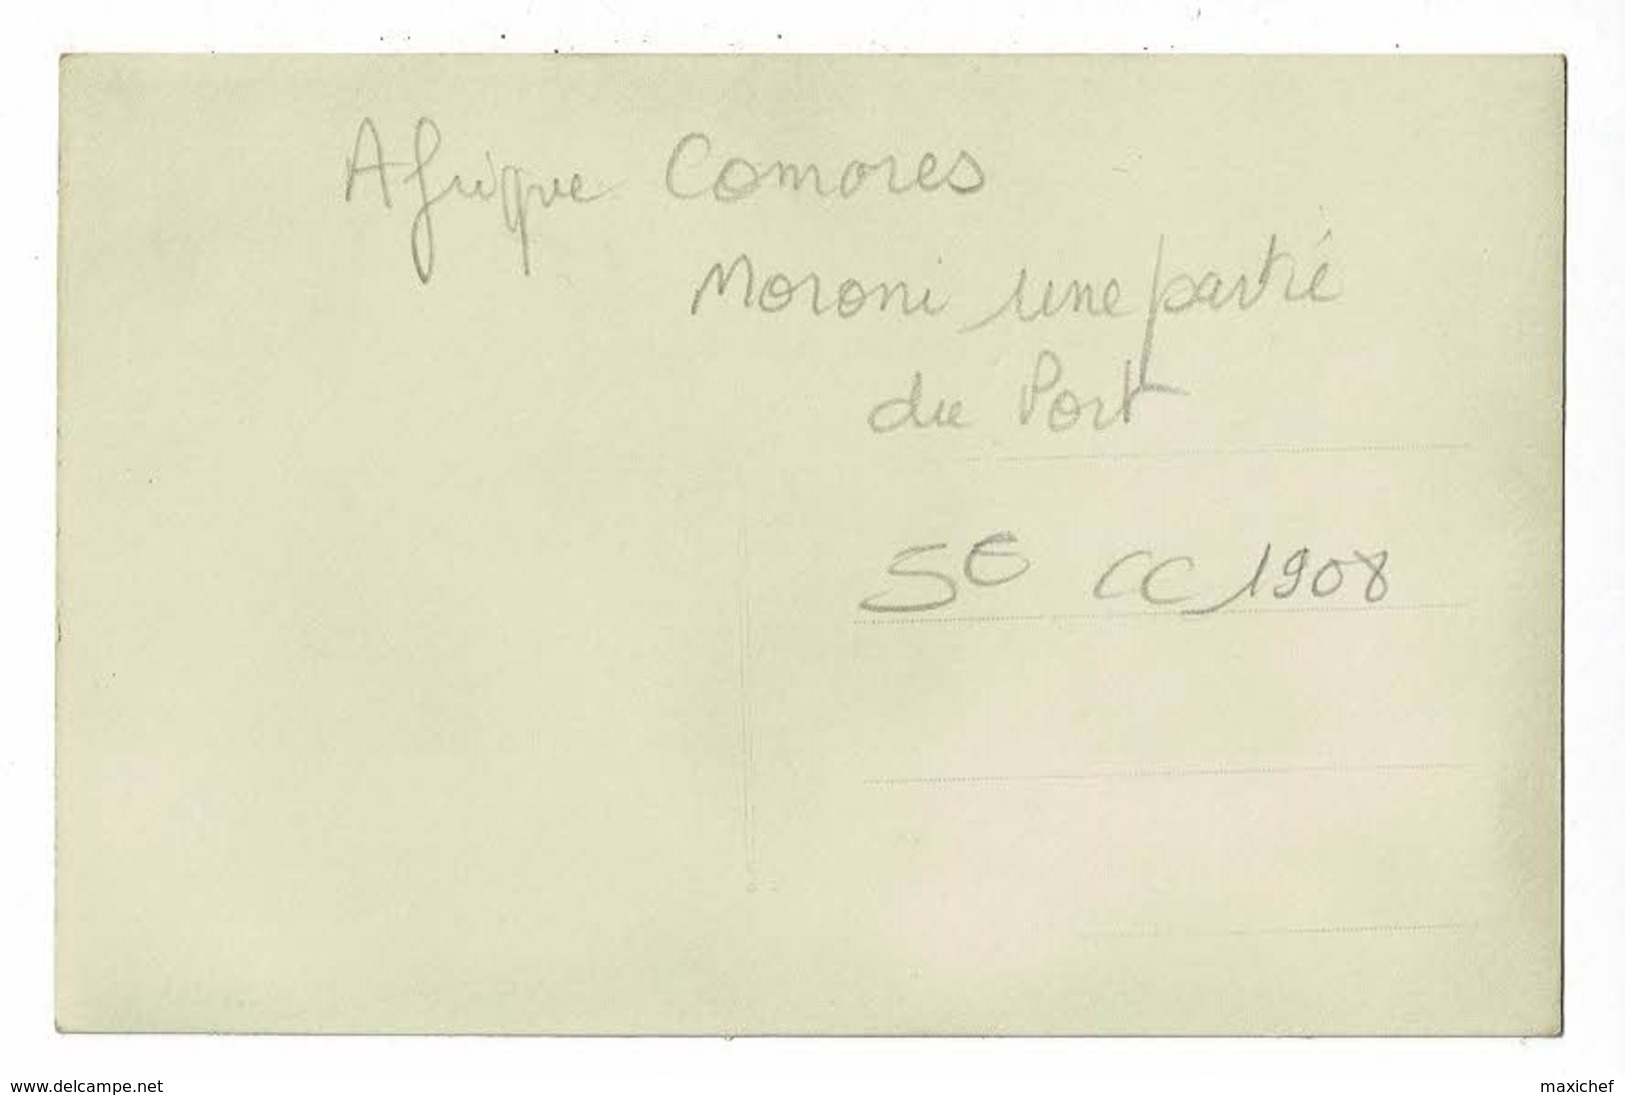 Afrique Comores
Moroni une partie
du Port
5€ CC 1908
www.delcampe.net
maxichef